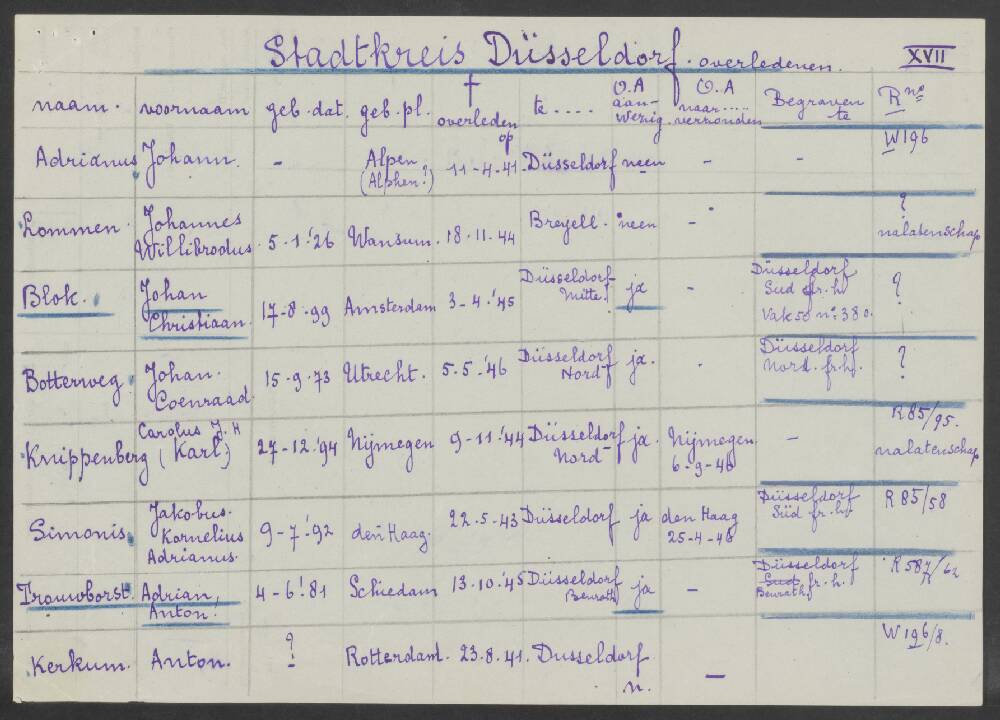 Stadtkreis Düsseldorf. overledenen. XVII
naam. voornaam geb. dat. geb. pl. † overleden op te .... O.A aanwezig. O.A naar .... verzonden Begraven te R nos
Adrianus Johann. - Alpen (Alphen?) 11-4-41. Düsseldorf neen - - W196
Lommen. Johannes Willibrodus 5-1-'26 Wansum. 18-11-44 Breyell. neen - ? nalatenschap
Blok. Johan Christiaan. 17-8-99 Amsterdam 3-4-'45 Düsseldorf-Mitte. ja - Düsseldorf Süd fr. h. Vak 50 n° 380. ?
Botterweg. Johan. Coenraad. 15-9-73 Utrecht. 5-5-'46 Düsseldorf Nord ja. - Düsseldorf Nord. fr. hf. ?
Knippenberg Carolus J. H (Karl) 27-12-'94 Nijmegen 9-11-'44 Düsseldorf Nord ja. Nijmegen 6-9-46 - R85/95. nalatenschap
Simonis. Jakobus. Kornelius Adrianus. 9-7-'92 den Haag. 22-5-43 Düsseldorf ja den Haag 25-4-48 Düsseldorf Süd fr. hf R 85/58
Trouwborst. Adrian, Anton. 4-6-'81 Schiedam 13-10-'45 Düsseldorf Benrath ja - Düsseldorf fr. h. Benrath R 587/62
Kerkum. Anton. ? Rotterdam. 23-8-41. Dusseldorf n. - W196/8.